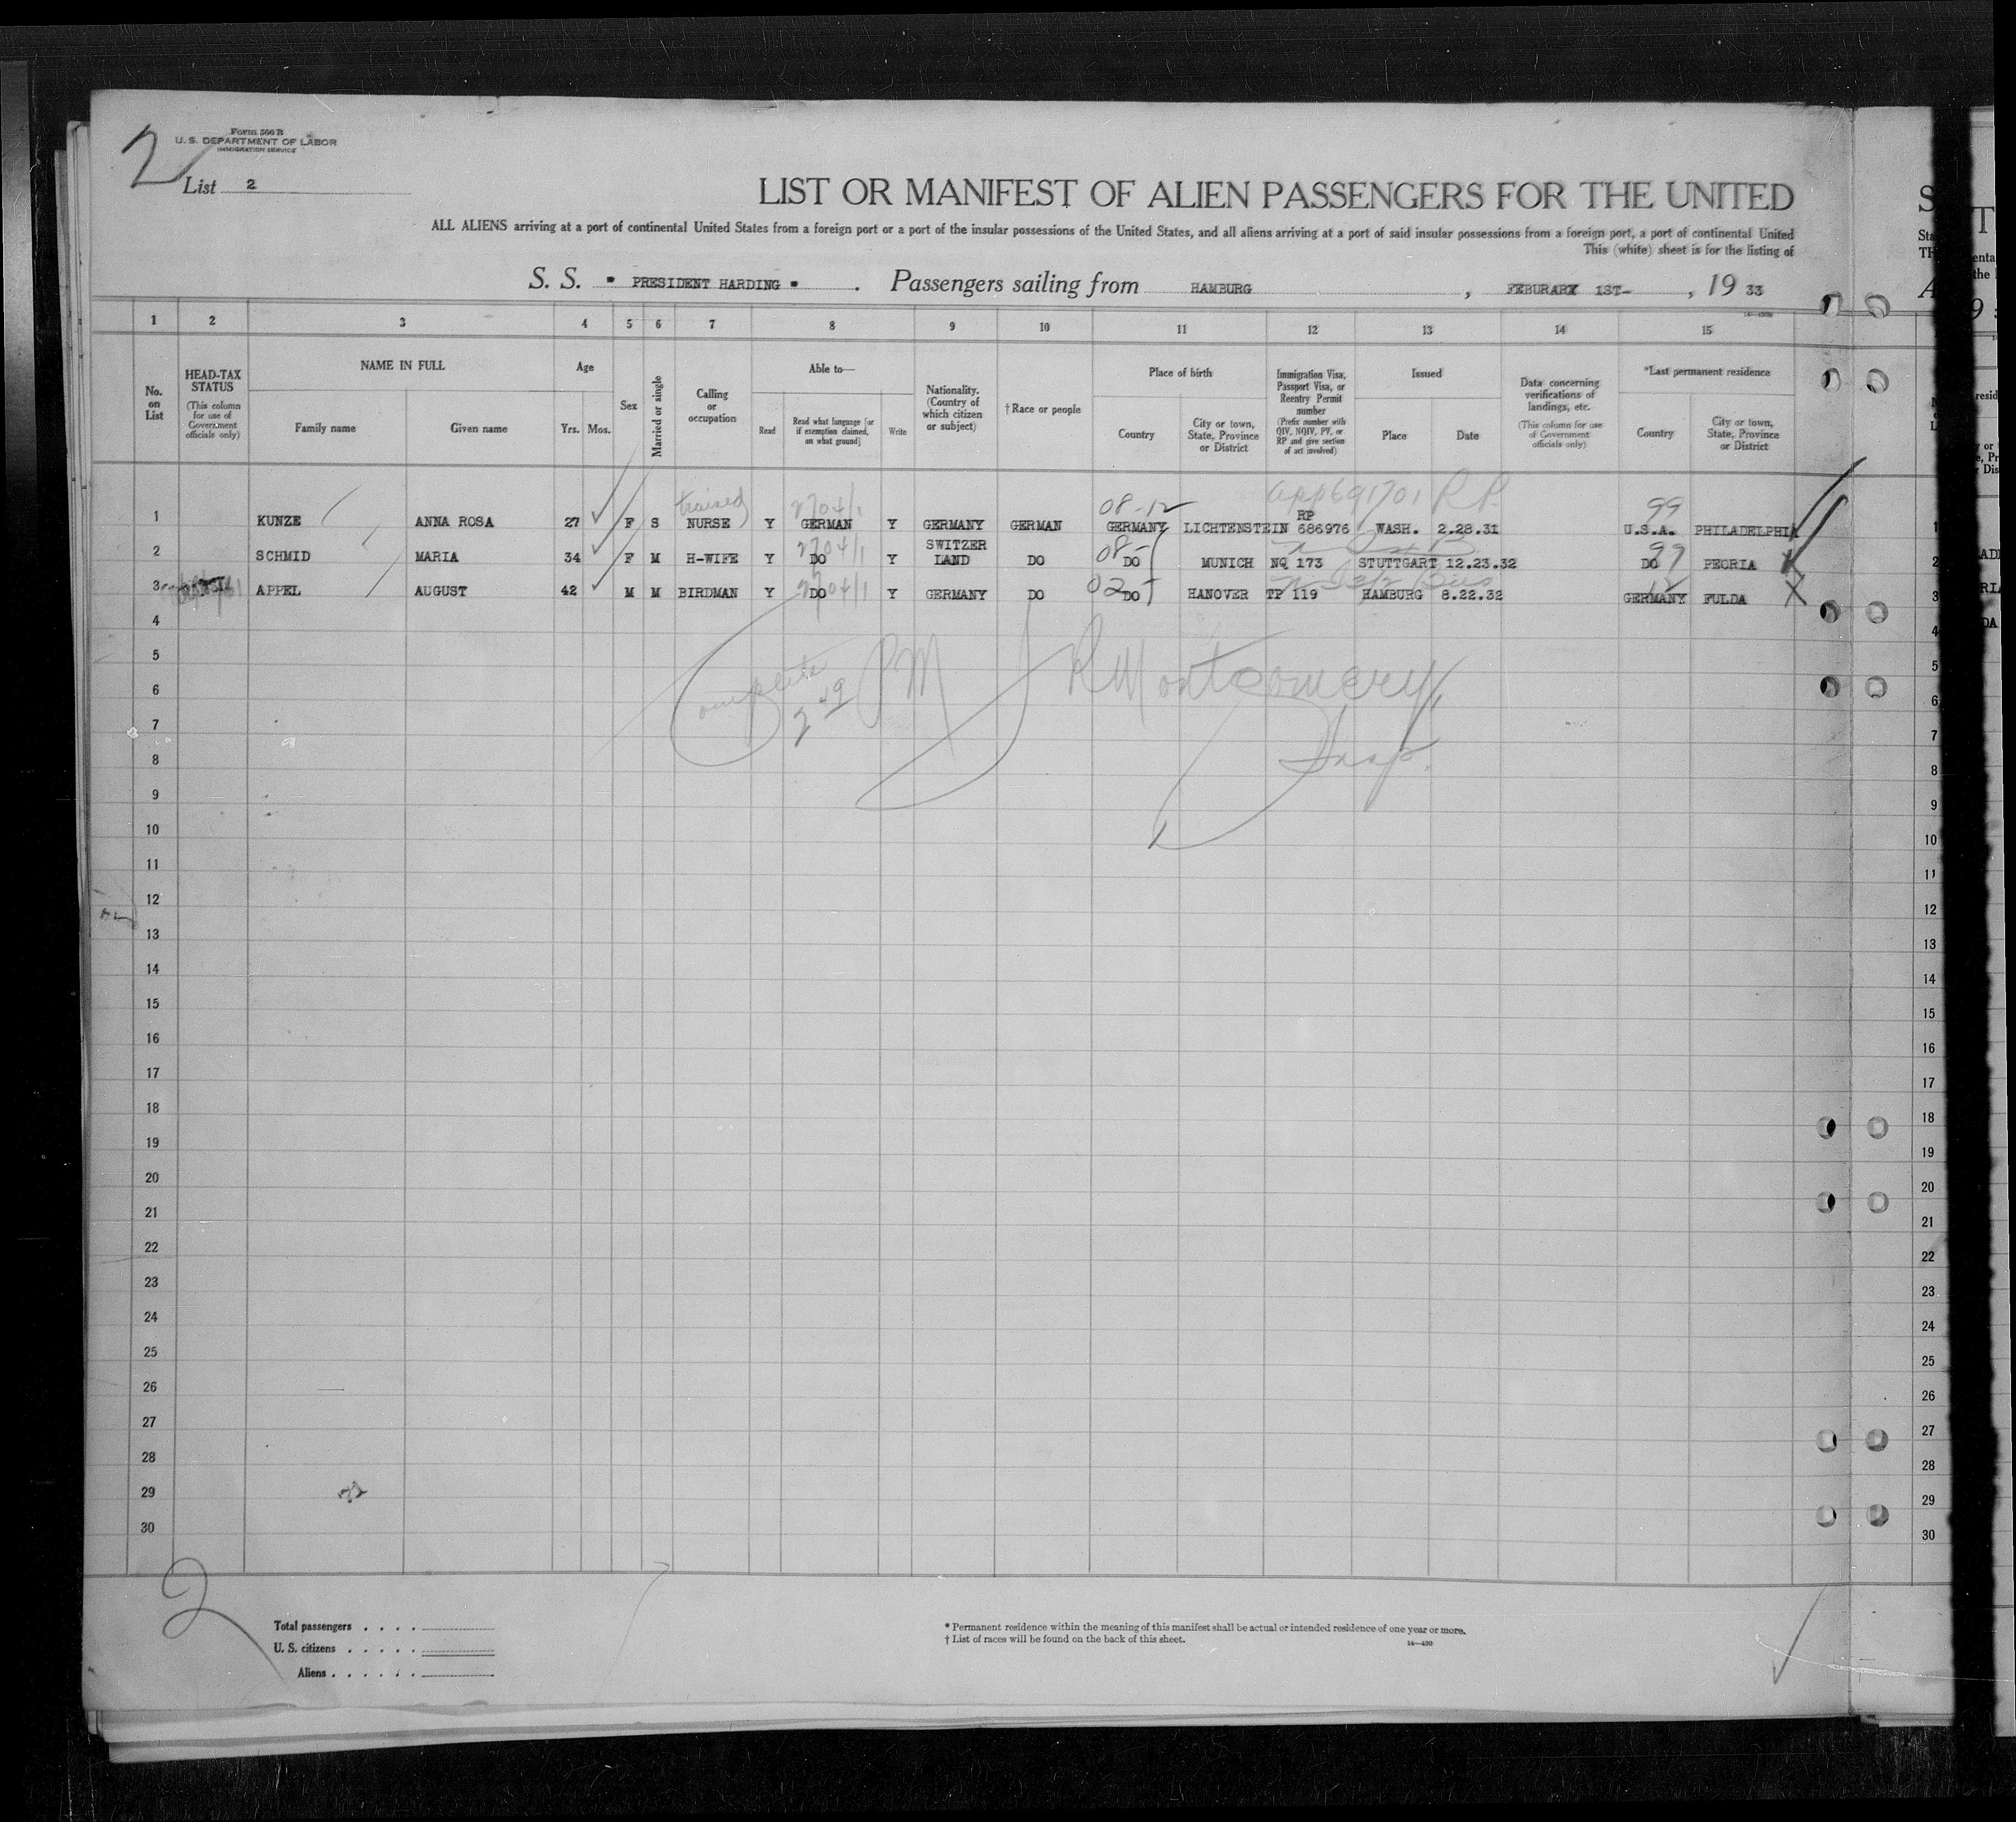 2
Form 566 B
U. S. DEPARTMENT OF LABOR
IMMIGRATION SERVICE
List 2
LIST OR MANIFEST OF ALIEN PASSENGERS FOR THE UNITED
ALL ALIENS arriving at a port of continental United States from a foreign port or a port of the insular possessions of the United States, and all aliens arriving at a port of said insular possessions from a foreign port, a port of continental United
This (white) sheet is for the listing of
S. S. " PRESIDENT HARDING " . Passengers sailing from HAMBURG , FEBURARY 1ST- , 19 33
1 2 3 4 5 6 7 8 9 10 11 12 13 14 15
No. on List
HEAD-TAX STATUS (This column for use of Government officials only)
NAME IN FULL
Family name Given name
Age
Yrs. Mos.
Sex
Married or single
Calling or occupation
Able to—
Read Read what language [or if exemption claimed, on what ground] Write
Nationality. (Country of which citizen or subject)
† Race or people
Place of birth
Country City or town, State, Province or District
Immigration Visa, Passport Visa, or Reentry Permit number (Prefix number with QIV, NQIV, PV, or RP and give section of act involved)
Issued
Place Date
Data concerning verifications of landings, etc. (This column for use of Government officials only)
*Last permanent residence
Country City or town, State, Province or District
trained 2704/1 08-12 app 691701 R.P. 99
1 KUNZE ANNA ROSA 27 F S NURSE Y GERMAN Y GERMANY GERMAN GERMANY LICHTENSTEIN RP 686976 WASH. 2.28.31 U.S.A. PHILADELPHIA
2704/1 08- 99
2 SCHMID MARIA 34 F M H-WIFE Y DO Y SWITZER LAND DO DO MUNICH NQ 173 STUTTGART 12.23.32 DO PEORIA
2704/1 02- 12
3 APPEL AUGUST 42 M M BIRDMAN Y DO Y GERMANY DO DO HANOVER TP 119 HAMBURG 8.22.32 GERMANY FULDA
4
5
6
Complete 2 49 PM J R Montgomery
7
8
Insp.
9
10
11
12
13
14
15
16
17
18
19
20
21
22
23
24
25
26
27
28
29
30
2
Total passengers . . . .
U. S. citizens . . . . .
Aliens . . . . . .
* Permanent residence within the meaning of this manifest shall be actual or intended residence of one year or more.
† List of races will be found on the back of this sheet.
14—430